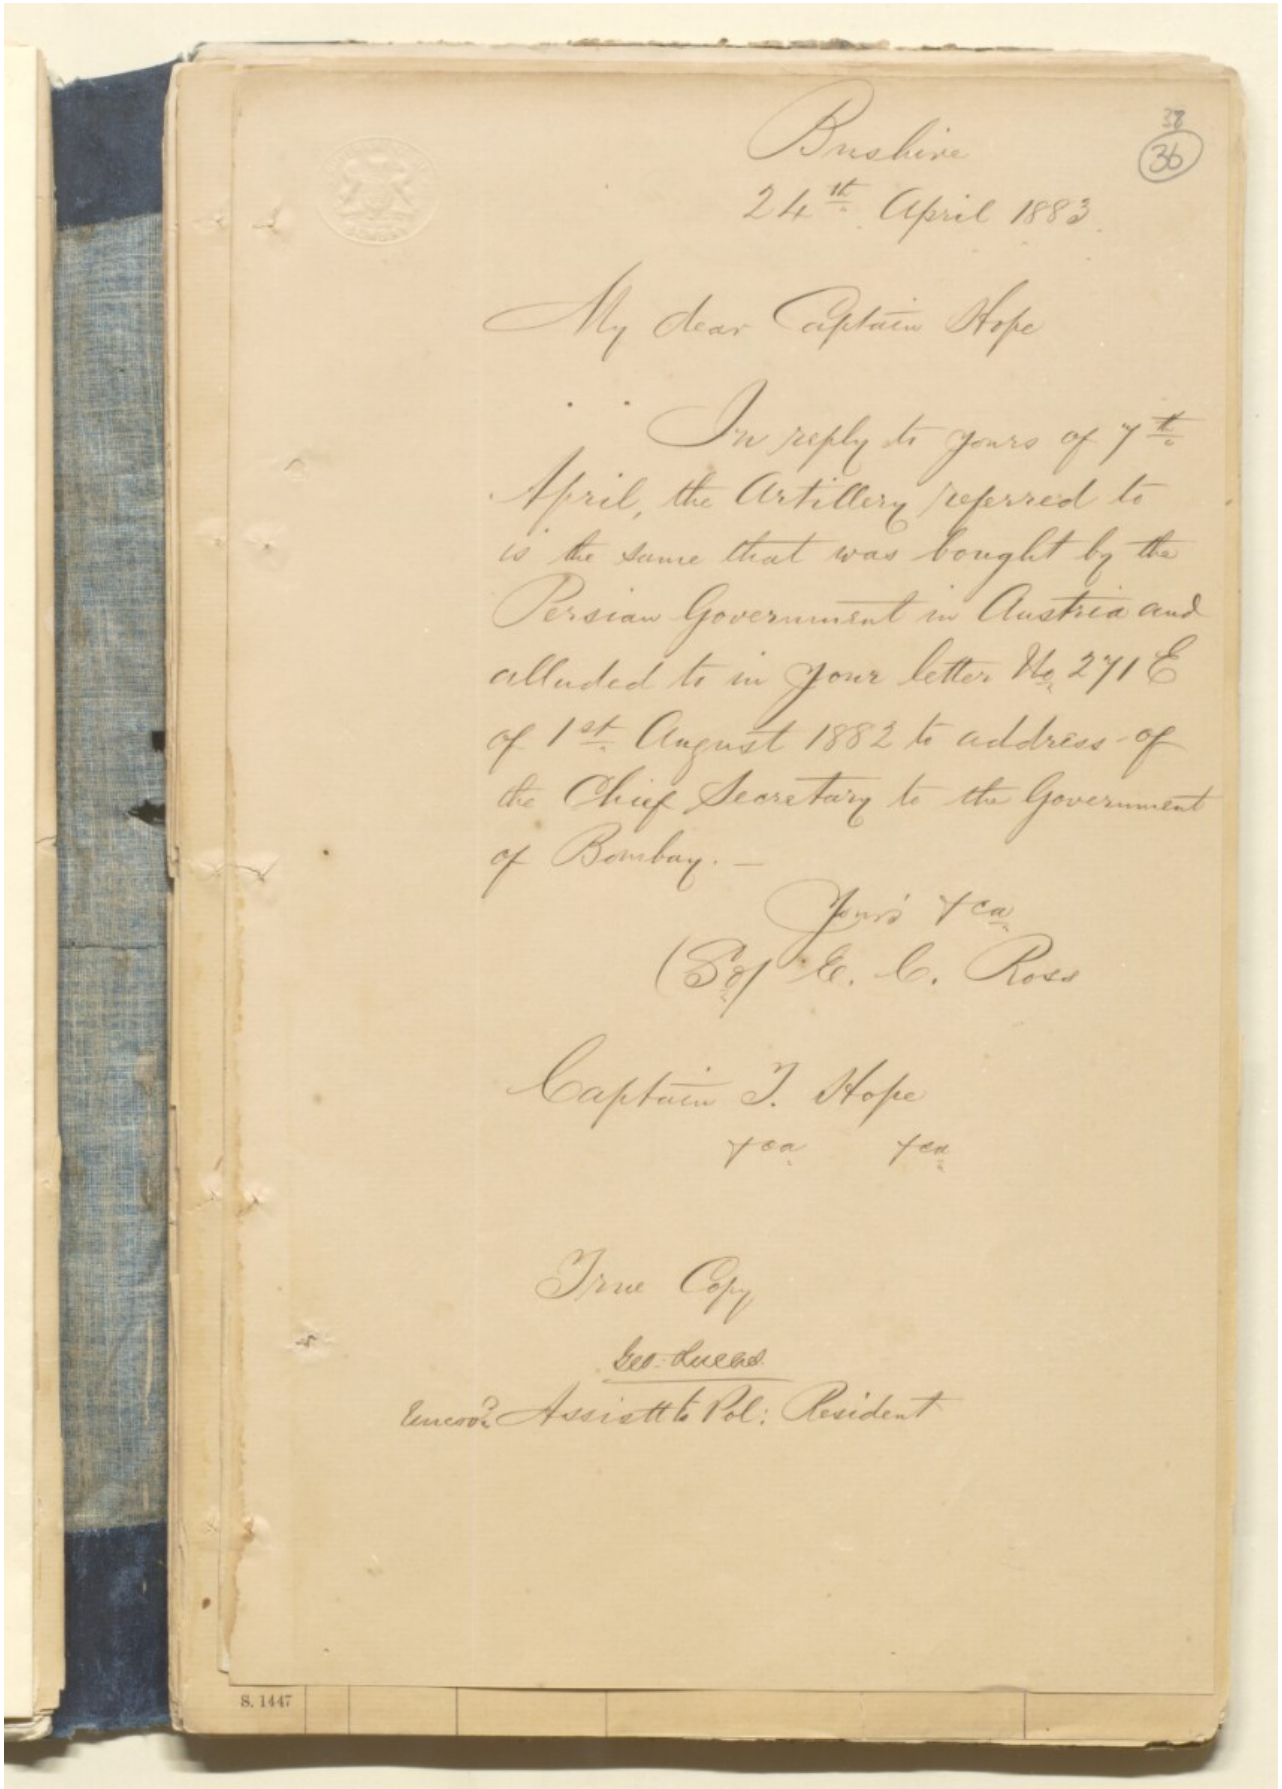 38
36
Bushire
24th April 1883.
My dear Captain Hope
In reply to yours of 7th
April, the Artillery referred to
is the same that was bought by the
Persian Government in Austria and
alluded to in your letter No. 271 E
of 1st August 1882 to address of
the Chief Secretary to the Government
of Bombay. —
Yours &ca
(Sd/ E. C. Ross
Captain T. Hope
&ca &ca
True Copy
Geo: Lucas
Uncovd. Assistt to Pol: Resident
S. 1447